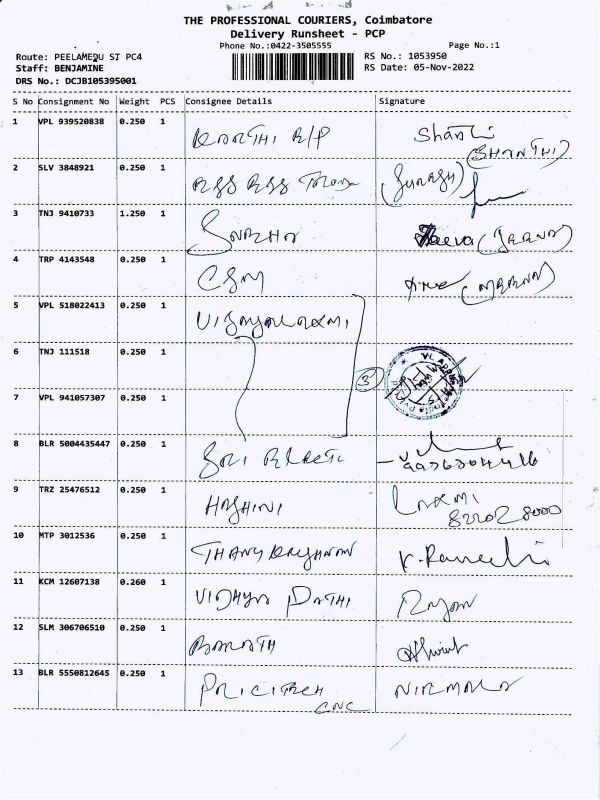 THE PROFESSIONAL COURIERS, Coimbatore
Delivery Runsheet - PCP
Phone No.:0422-3505555
Page No.:1
Route: PEELAMEDU ST PC4
RS No.: 1053950
Staff: BENJAMINE
RS Date: 05-Nov-2022
DRS No.: DCJB105395001
S No Consignment No Weight PCS Consignee Details Signature
1 VPL 939520838 0.250 1 KARTHI R/P Shanthi
(SHANTHI)
2 SLV 3848921 0.250 1 (SURESH)
3 TNJ 9410733 1.250 1
4 TRP 4143548 0.250 1 CSM
5 VPL 518022413 0.250 1 VIJAYALAXMI
6 TNJ 111518 0.250 1
3
7 VPL 941057307 0.250 1
8 BLR 5004435447 0.250 1 SRI
9 TRZ 25476512 0.250 1 HASHINI LAXMI
82202 8000
10 MTP 3012536 0.250 1 K.
11 KCM 12607138 0.260 1 VIDHYA PATHI Rajan
12 SLM 306706510 0.250 1 BARATH
13 BLR 5550812645 0.250 1 PRICITECH NIRMALA
CNC